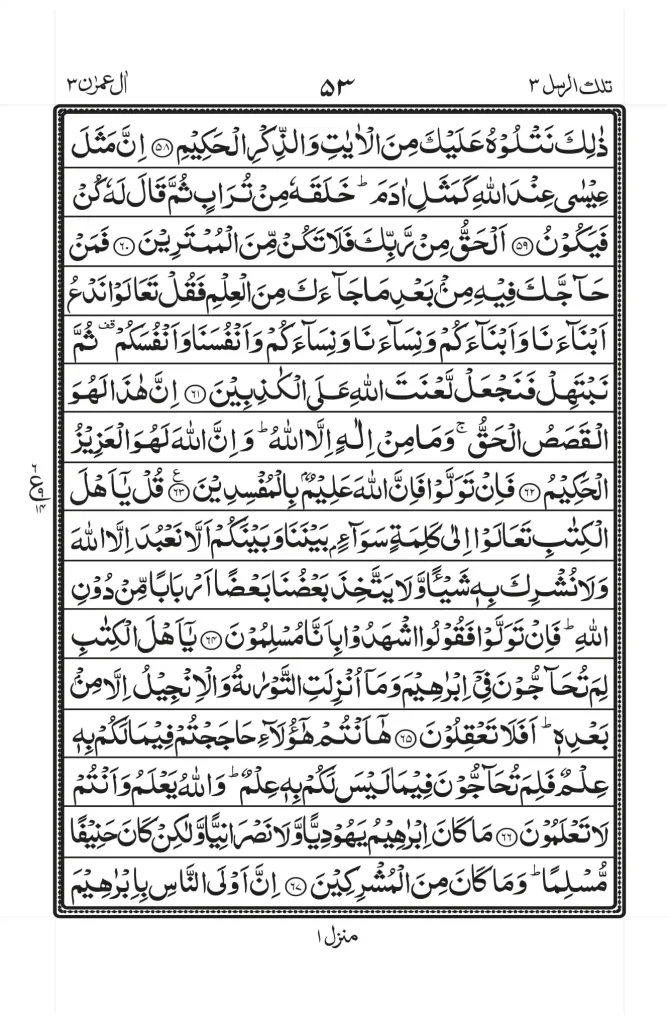 تلك الرسل ٣
٥٣
اٰل عمرٰن ٣
ذٰلِكَ نَتْلُوْهُ عَلَيْكَ مِنَ الْاٰيٰتِ وَالذِّكْرِ الْحَكِيْمِ ﴿٥٨﴾ اِنَّ مَثَلَ
عِيْسٰى عِنْدَ اللّٰهِ كَمَثَلِ اٰدَمَ ؕ خَلَقَهٗ مِنْ تُرَابٍ ثُمَّ قَالَ لَهٗ كُنْ
فَيَكُوْنُ ﴿٥٩﴾ اَلْحَقُّ مِنْ رَّبِّكَ فَلَا تَكُنْ مِّنَ الْمُمْتَرِيْنَ ﴿٦٠﴾ فَمَنْ
حَآجَّكَ فِيْهِ مِنْۢ بَعْدِ مَا جَآءَكَ مِنَ الْعِلْمِ فَقُلْ تَعَالَوْا نَدْعُ
اَبْنَآءَنَا وَاَبْنَآءَكُمْ وَنِسَآءَنَا وَنِسَآءَكُمْ وَاَنْفُسَنَا وَاَنْفُسَكُمْ قف ثُمَّ
نَبْتَهِلْ فَنَجْعَلْ لَّعْنَتَ اللّٰهِ عَلَى الْكٰذِبِيْنَ ﴿٦١﴾ اِنَّ هٰذَا لَهُوَ
الْقَصَصُ الْحَقُّ ۚ وَمَا مِنْ اِلٰهٍ اِلَّا اللّٰهُ ؕ وَاِنَّ اللّٰهَ لَهُوَ الْعَزِيْزُ
الْحَكِيْمُ ﴿٦٢﴾ فَاِنْ تَوَلَّوْا فَاِنَّ اللّٰهَ عَلِيْمٌۢ بِالْمُفْسِدِيْنَ ﴿٦٣﴾ ع قُلْ يٰۤاَهْلَ
الْكِتٰبِ تَعَالَوْا اِلٰى كَلِمَةٍ سَوَآءٍۭ بَيْنَنَا وَبَيْنَكُمْ اَلَّا نَعْبُدَ اِلَّا اللّٰهَ
وَلَا نُشْرِكَ بِهٖ شَيْـًٔا وَّلَا يَتَّخِذَ بَعْضُنَا بَعْضًا اَرْبَابًا مِّنْ دُوْنِ
اللّٰهِ ؕ فَاِنْ تَوَلَّوْا فَقُوْلُوا اشْهَدُوْا بِاَنَّا مُسْلِمُوْنَ ﴿٦٤﴾ يٰۤاَهْلَ الْكِتٰبِ
لِمَ تُحَآجُّوْنَ فِيْۤ اِبْرٰهِيْمَ وَمَاۤ اُنْزِلَتِ التَّوْرٰىةُ وَالْاِنْجِيْلُ اِلَّا مِنْۢ
بَعْدِهٖ ؕ اَفَلَا تَعْقِلُوْنَ ﴿٦٥﴾ هٰۤاَنْتُمْ هٰۤؤُلَآءِ حَاجَجْتُمْ فِيْمَا لَكُمْ بِهٖ
عِلْمٌ فَلِمَ تُحَآجُّوْنَ فِيْمَا لَيْسَ لَكُمْ بِهٖ عِلْمٌ ؕ وَاللّٰهُ يَعْلَمُ وَاَنْتُمْ
لَا تَعْلَمُوْنَ ﴿٦٦﴾ مَا كَانَ اِبْرٰهِيْمُ يَهُوْدِيًّا وَّلَا نَصْرَانِيًّا وَّلٰكِنْ كَانَ حَنِيْفًا
مُّسْلِمًا ؕ وَمَا كَانَ مِنَ الْمُشْرِكِيْنَ ﴿٦٧﴾ اِنَّ اَوْلَى النَّاسِ بِاِبْرٰهِيْمَ
منزل ١